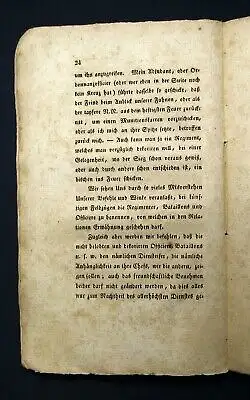 24
um ihn anzugreifen. Mein Adjudant, oder Or-
donnanzoffizier (oder wer eben in der Suite noch
kein Kreuz hat) führte dasselbe so geschickt, daß
der Feind beim Anblick unserer Fahnen, oder als
der tapfere N.N. aus dem heftigsten Feuer zurück
ritt, um einen Munitionskarren vorzuschicken,
oder als ich mich an ihre Spitze setzte, betroffen
zurück wich. — Auch kann man so ein Regiment,
welches man vorzüglich dekoriren will, bei einer
Gelegenheit, wo der Sieg schon voraus gewiß,
oder auch durch andere schon entschieden ist, ein
bischen ins Feuer schicken.
Wir sehen uns durch so vieles Mißverstehen
Unserer Befehle und Winke veranlaßt, bei künf-
tigen Feldzügen die Regimenter, Bataillons und
Offiziere zu benennen, von welchen in den Rela-
tionen Erwähnung geschehen darf.
Zugleich aber werden wir befehlen, daß die
nicht belobten und dekorirten Offiziere, Bataillons
u. s. w. den nämlichen Diensteifer, die nämliche
Anhänglichkeit an ihre Chefs, wie die andern, zei-
gen sollen; auch das freundschaftliche Benehmen
beider darf nicht geändert werden, da dies alles
nur zum Nachtheil des allerhöchsten Dienstes ge-